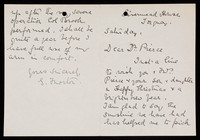 up after the … severe
operation Col. … 
performed. I shall be
quite a year before I
have full use of my
arm in comfort.
Yours sincerely
E. …
… House
Torquay.
Saturday.
Dear Dr. Pierce
Just a line
to wish you & Mrs.
Pierce & your son & daughter
a Happy Christmas & a
Prosperous Year.
I am glad to say the
sunshine we have had
has helped me to pick